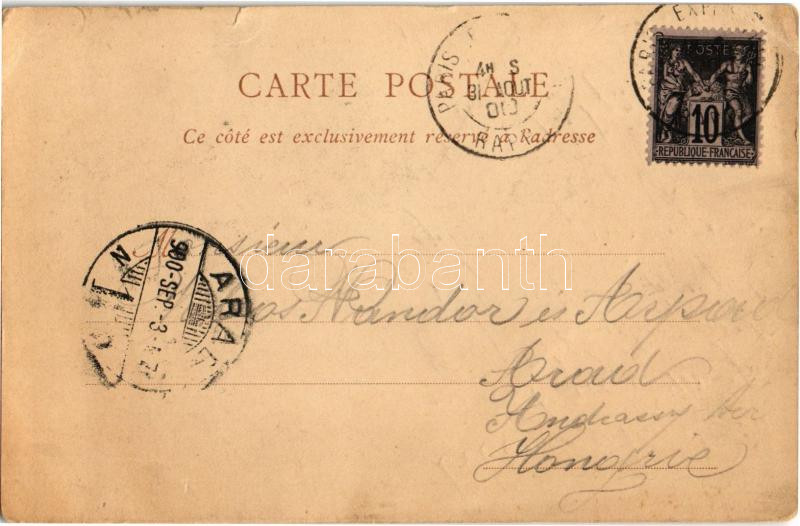 PARIS EXP
POSTE
10
REPUBLIQUE-FRANÇAISE
PARIS
4H S
31 AOUT
00
RAP
CARTE POSTALE
Ce côté est exclusivement réservé à l'adresse
ARAD
900-SEP-3
N
Monsieur
darabanth
Nandor és Arpad
Arad
Andrassy ter
Hongrie